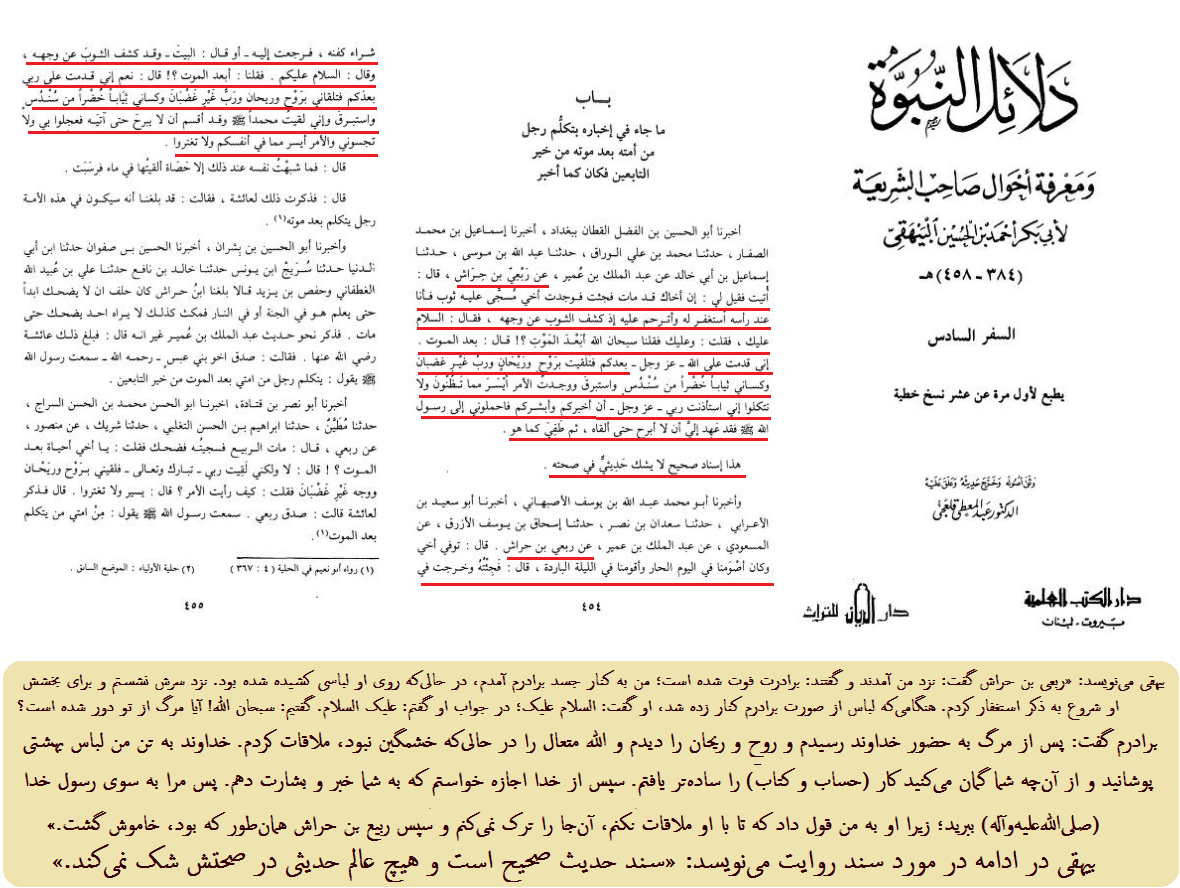 دلائل النبوة
ومعرفة أحوال صاحب الشريعة
لأبي بكر أحمد بن الحسين البيهقي
(٣٨٤ - ٤٥٨) هـ
السفر السادس
يطبع لأول مرة عن عشر نسخ خطية
وثق أصوله وخرج حديثه وعلق عليه
الدكتور عبد المعطي قلعجي
دار الكتب العلمية
بيروت - لبنان
دار الريان للتراث
بــاب
ما جاء في إخباره بتكلُّم رجل
من أمته بعد موته من خير
التابعين فكان كما أخبر
أخبرنا أبو الحسين بن الفضل القطان ببغداد ، أخبرنا إسماعيل بن محمد
الصفار ، حدثنا محمد بن علي الوراق ، حدثنا عبد الله بن موسى ، حدثنا
إسماعيل بن أبي خالد عن عبد الملك بن عُمير ، عن رَبْعِيّ بن حِراش ، قال :
أُتيت فقيل لي : إن أخاك قد مات فجئت فوجدت أخي مُسجًّى عليه ثوب فأنا
عند رأسه أستغفر له وأترحم عليه إذ كشف الثوب عن وجهه ، فقال : السلام
عليك ، فقلت : وعليك فقلنا سبحان الله أَبَعْدَ المَوْتِ ؟! قال : بعد الموت .
إني قدمت على الله ـ عز وجل ـ بعدكم فتلقيت بِرَوْحٍ وَرَيْحَانٍ وربّ غيرِ غضبان
وكساني ثياباً خُضْراً من سُنْدُسٍ واستبرقٍ ووجدتُ الأمر أَيْسَرَ مما تظُنُّونَ ولا
تتكلوا إني استأذنت ربي ـ عز وجل ـ أن أخبركم وأبشركم فاحملوني إلى رسول
الله ﷺ فقد عَهِدَ إليَّ أن لا أبرح حتى ألقاه ، ثم طَفِيَ كما هو .
هذا إسناد صحيح لا يشك حَدِيثيٌّ في صحته .
وأخبرنا أبو محمد عبد الله بن يوسف الأصبهاني ، أخبرنا أبو سعيد بن
الأعرابي ، حدثنا سعدان بن نصر ، حدثنا إسحاق بن يوسف الأزرق ، عن
المسعودي ، عن عبد الملك بن عمير ، عن ربعي بن حراش . قال : توفي أخي
وكان أصْوَمنا في اليوم الحار وأقومنا في الليلة الباردة ، قال : فَجِئْتُهُ وخرجت في
٤٥٤
شراء كفنه ، فرجعت إليه ـ أو قال : البيتَ ـ وقد كشف الثوبَ عن وجهه ،
وقال : السلام عليكم . فقلنا : أبعد الموت ؟! قال : نعم إني قدمت على ربي
بعدكم فتلقاني بِرَوْحٍ وريحان وربٍّ غَيْرِ غَضْبَانَ وكساني ثِيَاباً خُضْراً من سُنْدُس
واستبرقَ وإني لقيتُ محمداً ﷺ وقد أقسم أن لا يبرحَ حتى آتيَه فعجلوا بي ولا
تجسوني والأمر أيسر مما في أنفسكم ولا تغتروا .
قال : فما شبهْتُ نفسه عند ذلك إلا حَصَاة ألقيتُها في ماء فرسَبَت .
قال : فذكرت ذلك لعائشة ، فقالت : قد بلغنا أنه سيكون في هذه الأمة
رجل يتكلم بعد موته(١) .
وأخبرنا أبو الحسين بن بشران ، أخبرنا الحسين بن صفوان حدثنا ابن أبي
الدنيا حدثنا سُرَيْجُ ابن يونس حدثنا خالد بن نافع حدثنا علي بن عُبيد الله
الغطفاني وحفص بن يزيد قالا بلغنا ابنُ حراش كان حلف ان لا يضحك ابداً
حتى يعلم هو في الجنة أو في النار فمكث كذلك لا يراه احد يضحك حتى
مات . فذكر نحو حديث عبد الملك بن عُمير غير انه قال : فبلغ ذلك عائشة
رضي الله عنها . فقالت : صدق اخو بني عبس ـ رحمه الله ـ سمعت رسول الله
ﷺ يقول : يتكلم رجل من امتي بعد الموت من خير التابعين .
أخبرنا أبو نصر بن قتادة، اخبرنا ابو الحسن محمد بن الحسن السراج ،
حدثنا مُطَيَّنٌ ، حدثنا ابراهيم بن الحسن التغلبي ، حدثنا شريك ، عن منصور ،
عن ربعي ، قال : مات الربيع فسجيتُه فضحك فقلت : يا أخي أحياة بعد
الموت ؟! قال : لا ولكني لَقِيت ربي ـ تبارك وتعالى ـ فلقيني بِرَوْحٍ وريْحَان
ووجه غَيْرِ غَضْبَانَ فقلت : كيف رأيت الأمر؟ قال : يسير ولا تغتروا . قال فذكر
لعائشة قالت : صدق ربعي . سمعت رسول الله ﷺ يقول : مِنْ امتي من يتكلم
بعد الموت(١) .
(١) رواه أبو نعيم في الحلية (٤ : ٣٦٧) (٢) حلية الأولياء : الموضع السابق .
٤٥٥
بیهقی می‌نویسد: «ربعی بن حراش گفت: نزد من آمدند و گفتند: برادرت فوت شده است؛ من به کنار جسد برادرم آمدم، در حالی‌که روی او لباسی کشیده شده بود. نزد سرش نشستم و برای بخشش
او شروع به ذکر استغفار کردم. هنگامی‌که لباس از صورت برادرم کنار زده شد، او گفت: السلام علیک؛ در جواب او گفتم: علیک السلام. گفتیم: سبحان الله! آیا مرگ از تو دور شده است؟
برادرم گفت: پس از مرگ به حضور خداوند رسیدم و روح و ریحان را دیدم و الله متعال را در حالی‌که خشمگین نبود، ملاقات کردم. خداوند به تن من لباس بهشتی
پوشانید و از آن‌چه شما گمان می‌کنید کار (حساب و کتاب) را ساده‌تر یافتم. سپس از خدا اجازه خواستم که به شما خبر و بشارت دهم. پس مرا به سوی رسول خدا
(صلی‌الله‌علیه‌وآله) ببرید؛ زیرا او به من قول داد که تا با او ملاقات نکنم، آن‌جا را ترک نمی‌کنم و سپس ربیع بن حراش همان‌طور که بود، خاموش گشت.»
بیهقی در ادامه در مورد سند روایت می‌نویسد: «سند حدیث صحیح است و هیچ عالم حدیثی در صحتش شک نمی‌کند.»